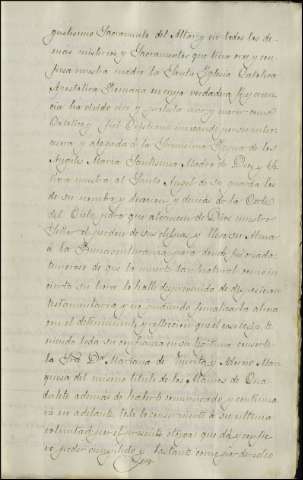 gustisimo Sacramento del Altar, y en todos los de-
mas misterios y Sacramentos que tiene cree y con-
fiesa nuestra madre la Santa Yglesia Catolica
Apostolica Romana en cuya verdadera fe y creen-
cia ha vivido vive y protesta vivir y morir como
Catolico y fiel Cristiano invocando por su inter-
cesora y abogada á la Serenisima Reyna de los
Angeles Maria Santisima Madre de Dios y Se-
ñora nuestra al Santo Angel de su guarda los
de su nombre y devocion y demas de la Corte
del Cielo para que alcancen de Dios nuestro
Señor el perdon de sus culpas, y lleve su Alma
á la Bienaventuranza para donde fue criada:
temeroso de que la muerte tan natural como in-
cierta su hora le halle desprevenido de disposicion
testamentaria y no pudiendo formalizarla ahora
con el detenimiento y reflexion que el caso exige, te-
niendo toda su confianza en su legitima consorte
la Sra. Da. Mariana de y Adorno Mar-
quesa del mismo titulo de los Alamos de Gua-
dalete ademas de haberle comunicado, y continua-
rá en adelante todo lo concerniente á su ultima
voluntad; por el presente otorga: que da y confie-
re poder cumplido y bastante como por derecho